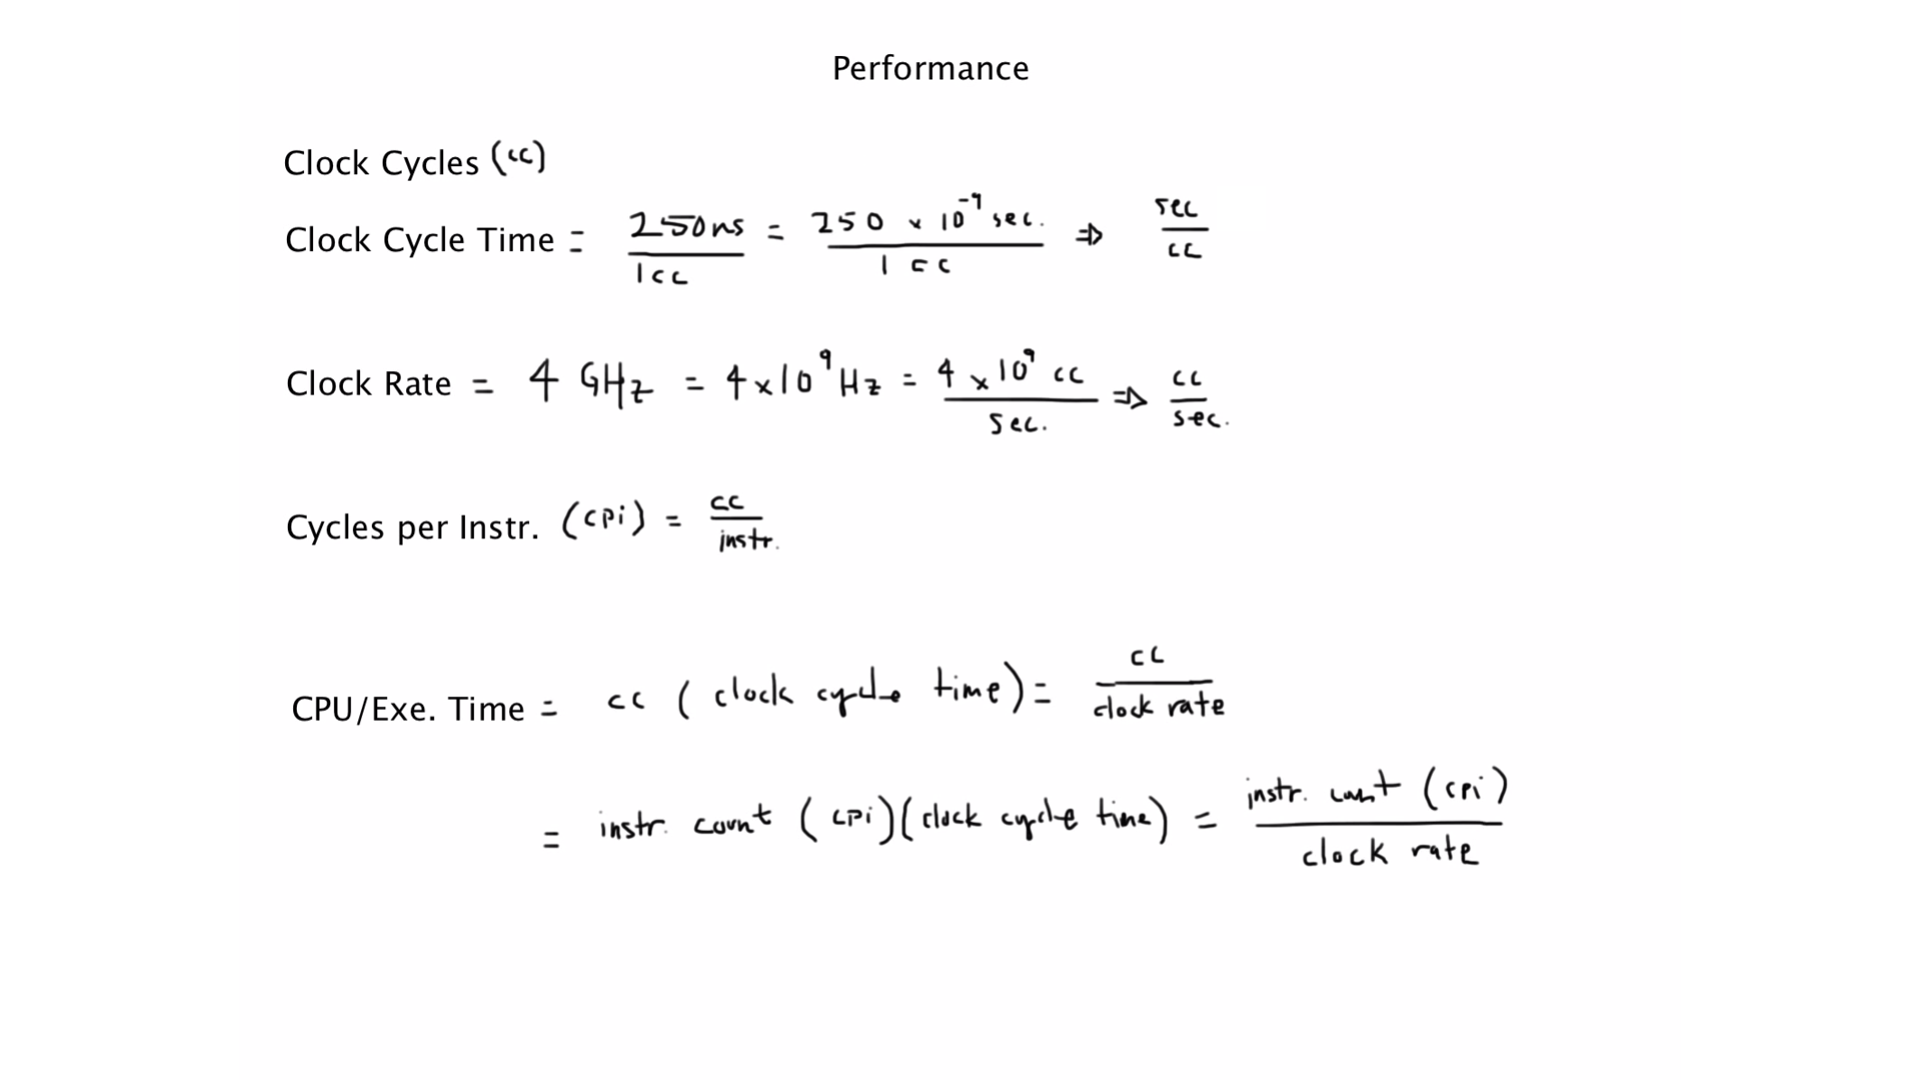 Performance
Clock Cycles (cc)
Clock Cycle Time = 250ns / 1cc = 250 x 10^-9 sec. / 1 cc ⇒ sec / cc
Clock Rate = 4 GHz = 4x10^9 Hz = 4 x 10^9 cc / sec. ⇒ cc / sec.
Cycles per Instr. (cpi) = cc / instr.
CPU/Exe. Time = cc ( clock cycle time) = cc / clock rate
= instr. count ( cpi)(clock cycle time) = instr. count (cpi) / clock rate